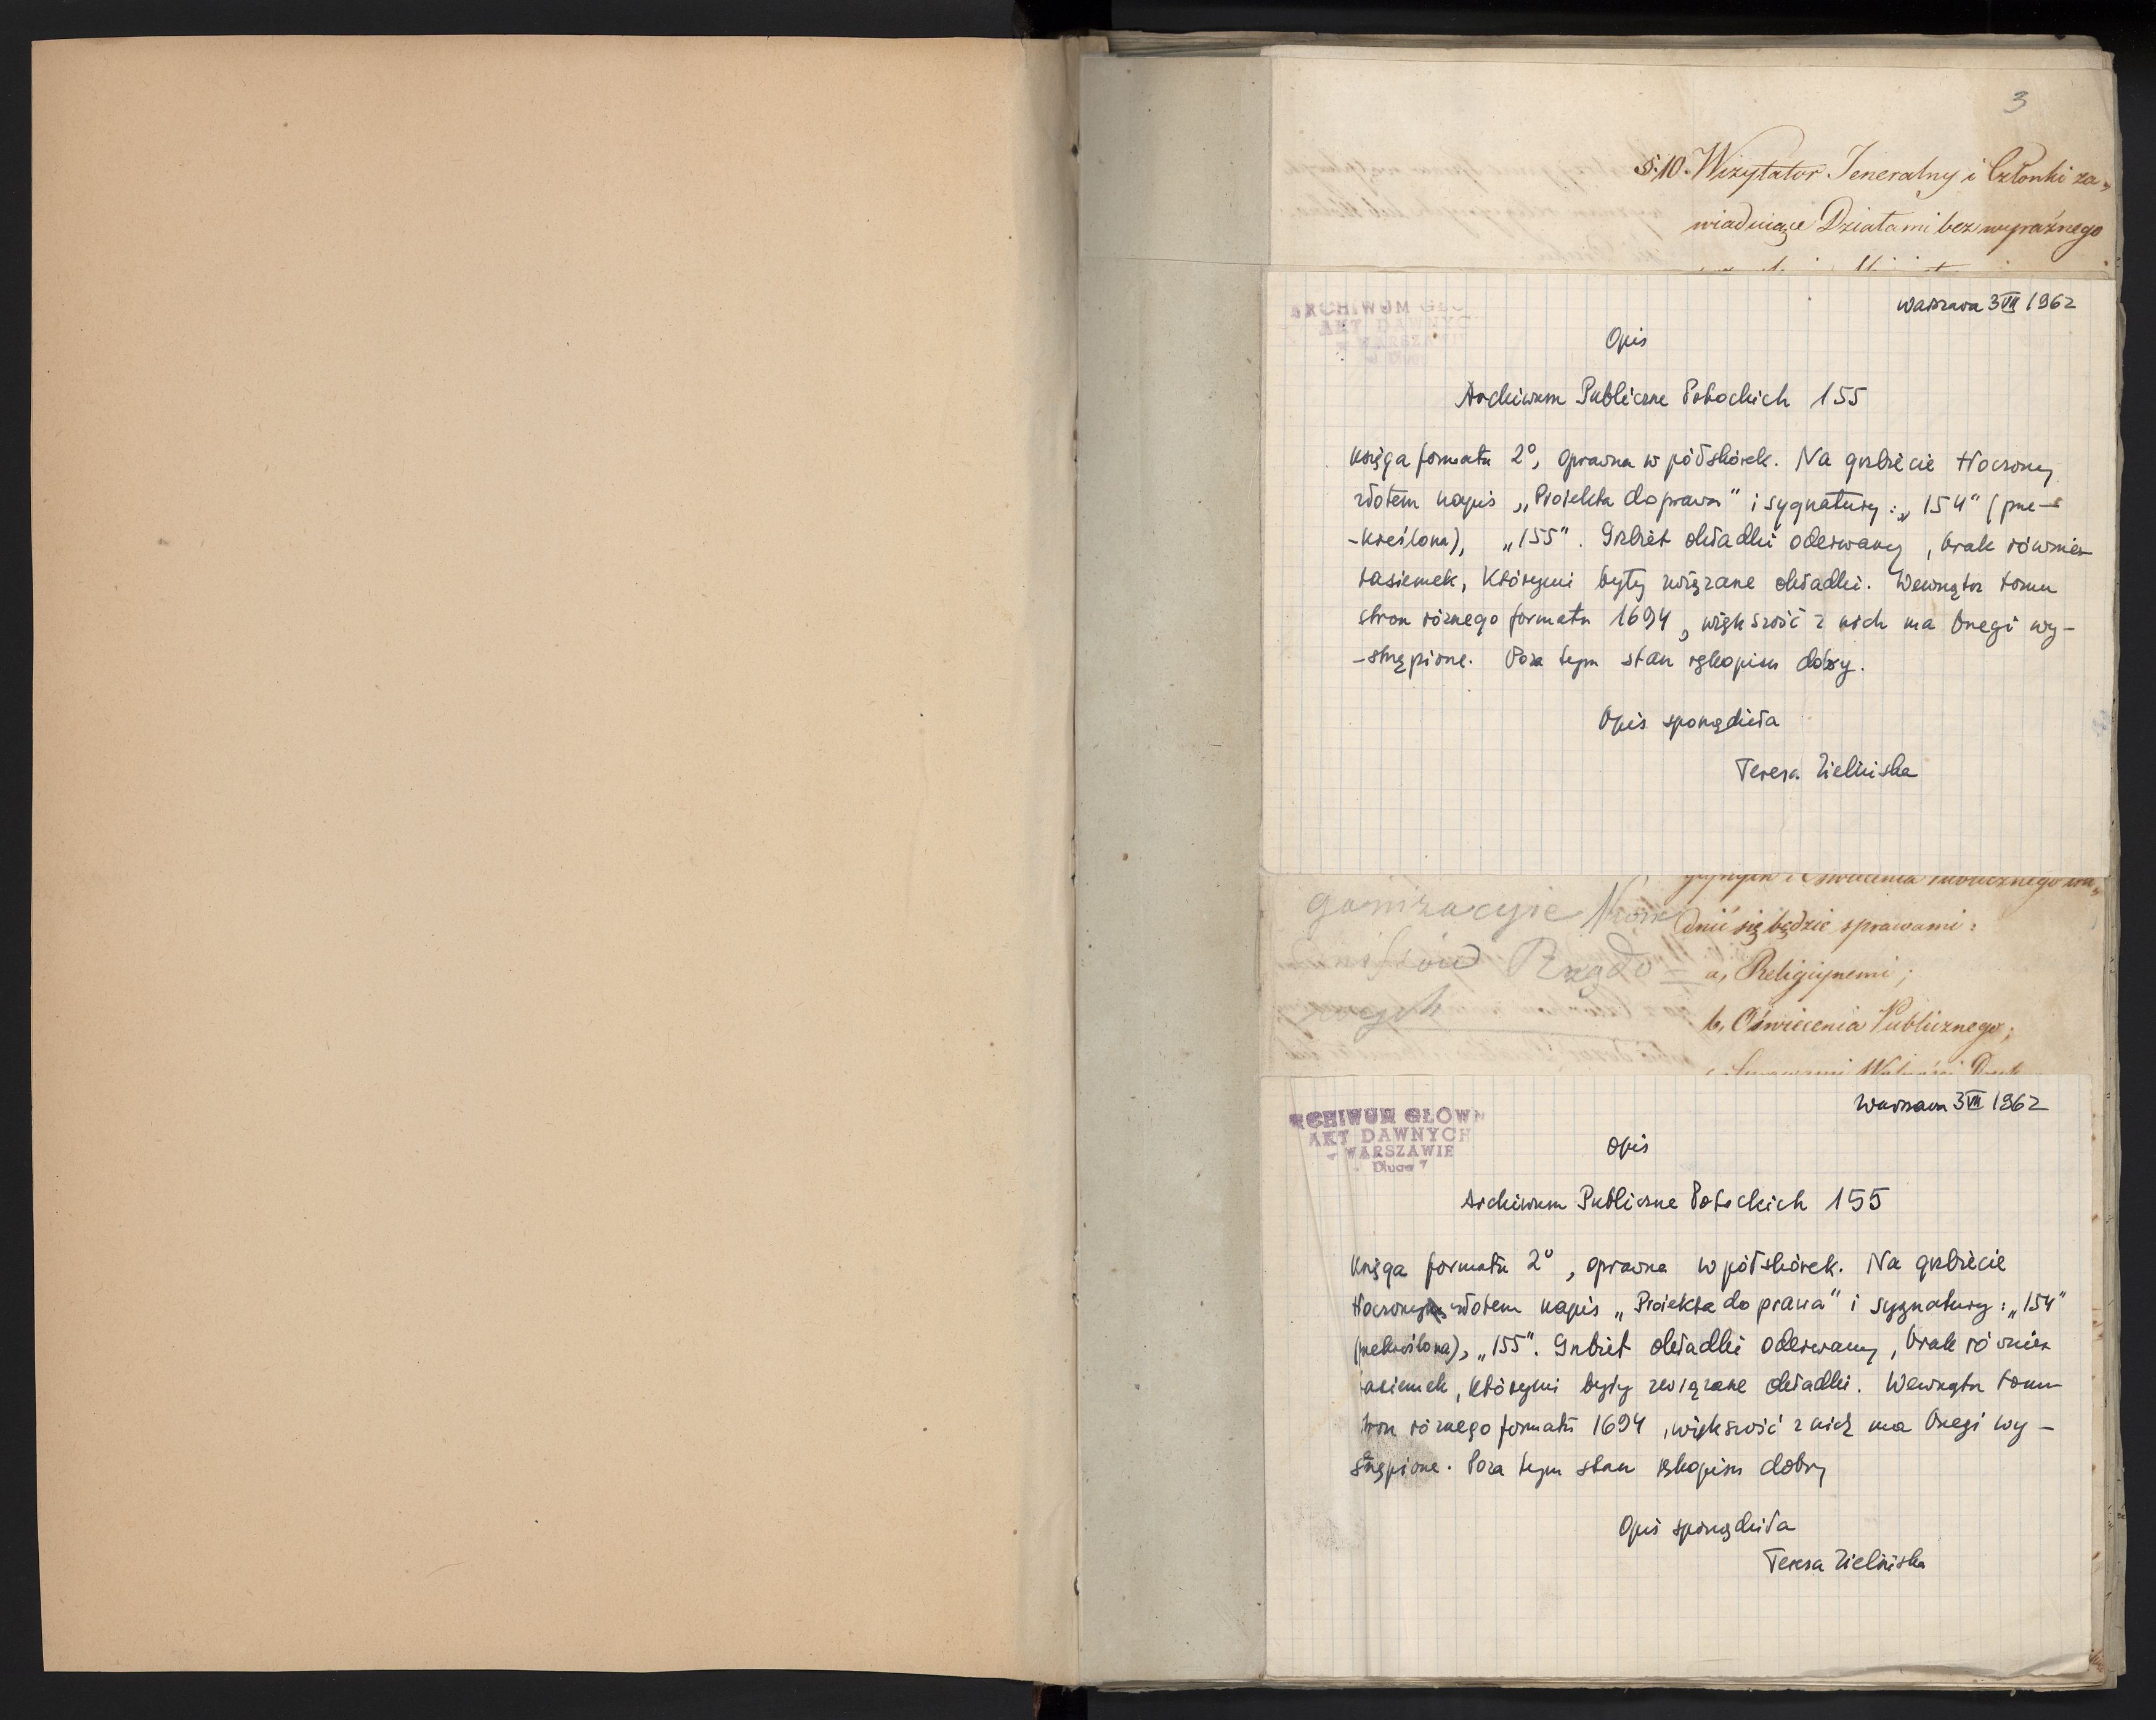 3
§.10. Wizytator Jeneralny i Członki za„
wiaduiące Działami bez wyraźnego
Warszawa 3 VII 1962
Opis
Archiwum Publiczne Potockich 155
Księga formatu 2°, oprawna w półskórek. Na grzbiecie tłoczony
złotem napis „Proiekta do prawa" i sygnatury: „154" (prze-
-kreślona), „155". Grzbiet okładki oderwany, brak również
tasiemek, którymi były związane okładki. Wewnątrz tomu
stron różnego formatu 1694, większość z nich ma brzegi wy-
-strzępione. Poza tym stan rękopisu dobry.
Opis sporządziła
Teresa Zielińska
i Oświecenia Publicznego tru„
ganizacyie
dnić się będzie sprawami:
Rządo=
a, Religiynemi;
wych
b, Oświecenia Publicznego;
Warszawa 3 VII 1962
RCHIWUM GŁÓWN
AKT DAWNYCH
WARSZAWIE
Długa 7
Opis
Archiwum Publiczne Potockich 155
Księga formatu 2°, oprawna w półskórek. Na grzbiecie
tłoczony złotem napis „Proiekta do prawa" i sygnatury: „154"
(przekreślona), „155". Grzbiet okładki oderwany, brak również
tasiemek, którymi były związane okładki. Wewnątrz tomu
stron różnego formatu 1694, większość z nich ma brzegi wy-
strzępione. Poza tym stan rękopisu dobry
Opis sporządziła
Teresa Zielińska